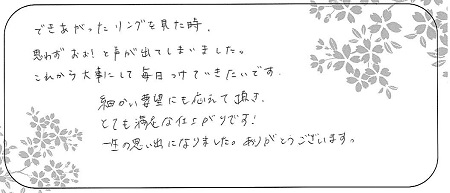 できあがったリングを見た時、
思わずおぉ！と声が出てしまいました。
これから大事にして毎日つけていきたいです。
細かい要望にも応えて頂き、
とても満足な仕上がりです！
一生の思い出になりました。ありがとうございます。